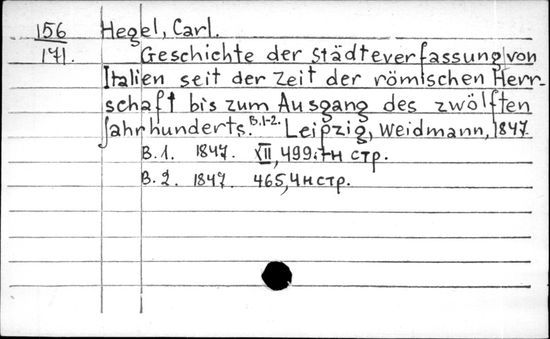 156 Hegel, Carl.
171. Geschichte der Städteverfassung von
Italien seit der Zeit der römischen Herr-
schaft bis zum Ausgang des zwölften
Jahrhunderts. B.1-2. Leipzig, Weidmann, 1847
B.1. 1847. XII, 499 стр.
B.2. 1847. 465, 4н стр.